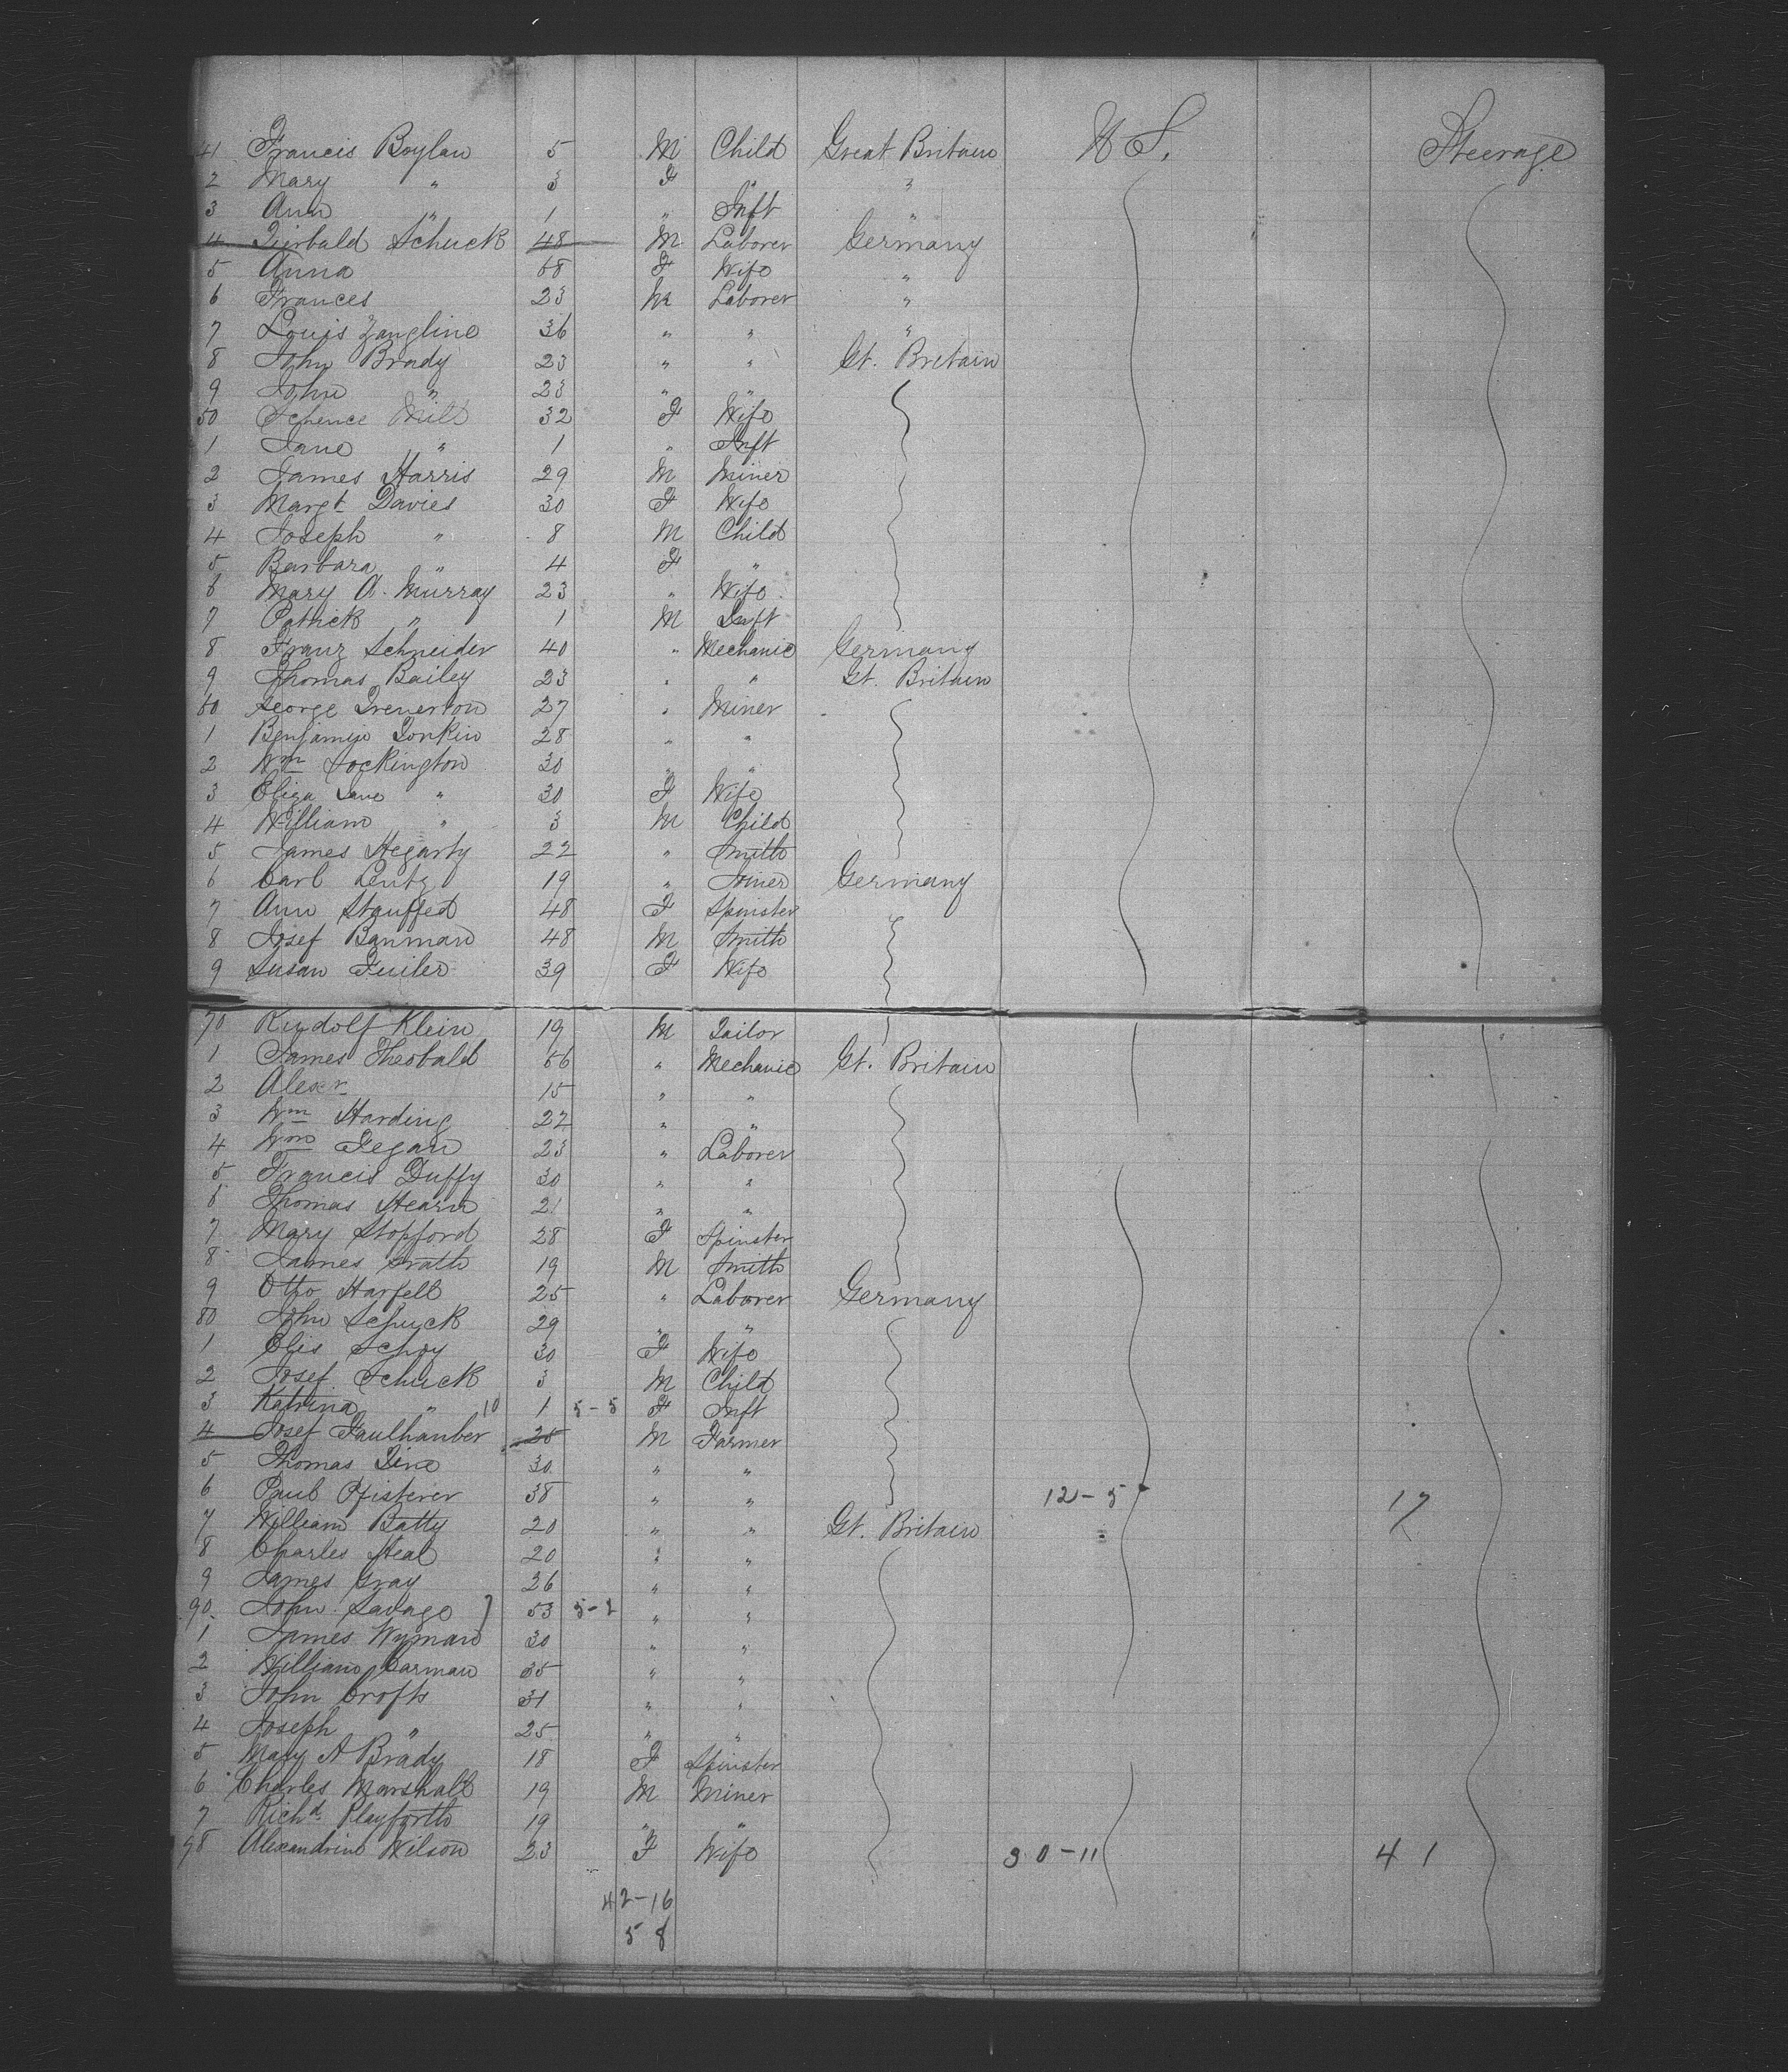 41 Francis Boylan 5 M Child Great Britain U S. Steerage
2 Mary " 3 F " "
3 Ann " 1 " Inft "
4 Schuck 48 M Laborer Germany
5 Anna 68 F Wife "
6 Frances 23 M Laborer "
7 Louis Zangline 36 " " "
8 John Brady 23 " " Gt. Britain
9 John " 23 " "
50 Mills 32 F Wife
1 Jane " 1 " Inft
2 James Harris 29 M Miner
3 Margt Davies 30 F Wife
4 Joseph " 8 M Child
5 Barbara " 4 F "
6 Mary A. Murray 23 " Wife
7 Patrick " 1 M Inft
8 Franz Schneider 40 " Mechanic Germany
9 Thomas Bailey 23 " " Gt. Britain
60 George Trenerton 27 " Miner
1 Benjamin Tonkin 28 " "
2 Wm Sockington 30 " "
3 Eliza Jane " 30 F Wife
4 William " 3 M Child
5 James Hegarty 22 " Smith
6 Carl Lentz 19 " Joiner Germany
7 Ann Stauffed 48 F Spinster
8 Josef Banman 48 M Smith
9 Susan 39 F Wife
70 Rudolf Klein 19 M Tailor
1 James Theobald 56 " Mechanic Gt. Britain
2 Alexr 15 " "
3 Wm Harding 22 " "
4 Wm Fegan 23 " Laborer
5 Francis Duffy 30 " "
6 Thomas Hearn 21 " "
7 Mary Stopford 28 F Spinster
8 James Grath 19 M Smith
9 Otto Harfell 25 " Laborer Germany
80 John Schuck 29 " "
1 Elis 30 F Wife
2 Josef Schuck 3 M Child
3 Katrina " 10 1 5-5 F Inft
4 Josef Faulhamber 25 M Farmer
5 Thomas 30 " "
6 Paul Pfisterer 38 " " 12-5 17
7 William Batty 20 " " Gt. Britain
8 Charles Heal 20 " "
9 James Gray 26 " "
90 John Savage 53 5-2 " "
1 James Wyman 30 " "
2 William Carman 35 " "
3 John Crofts 31 " "
4 Joseph " 25 " "
5 Mary A Brady 18 F Spinster
6 Charles Marshall 19 M Miner
7 Richd. Playforth 19 " "
98 Alexandrine Wilson 23 F Wife 30-11 41
42-16
58